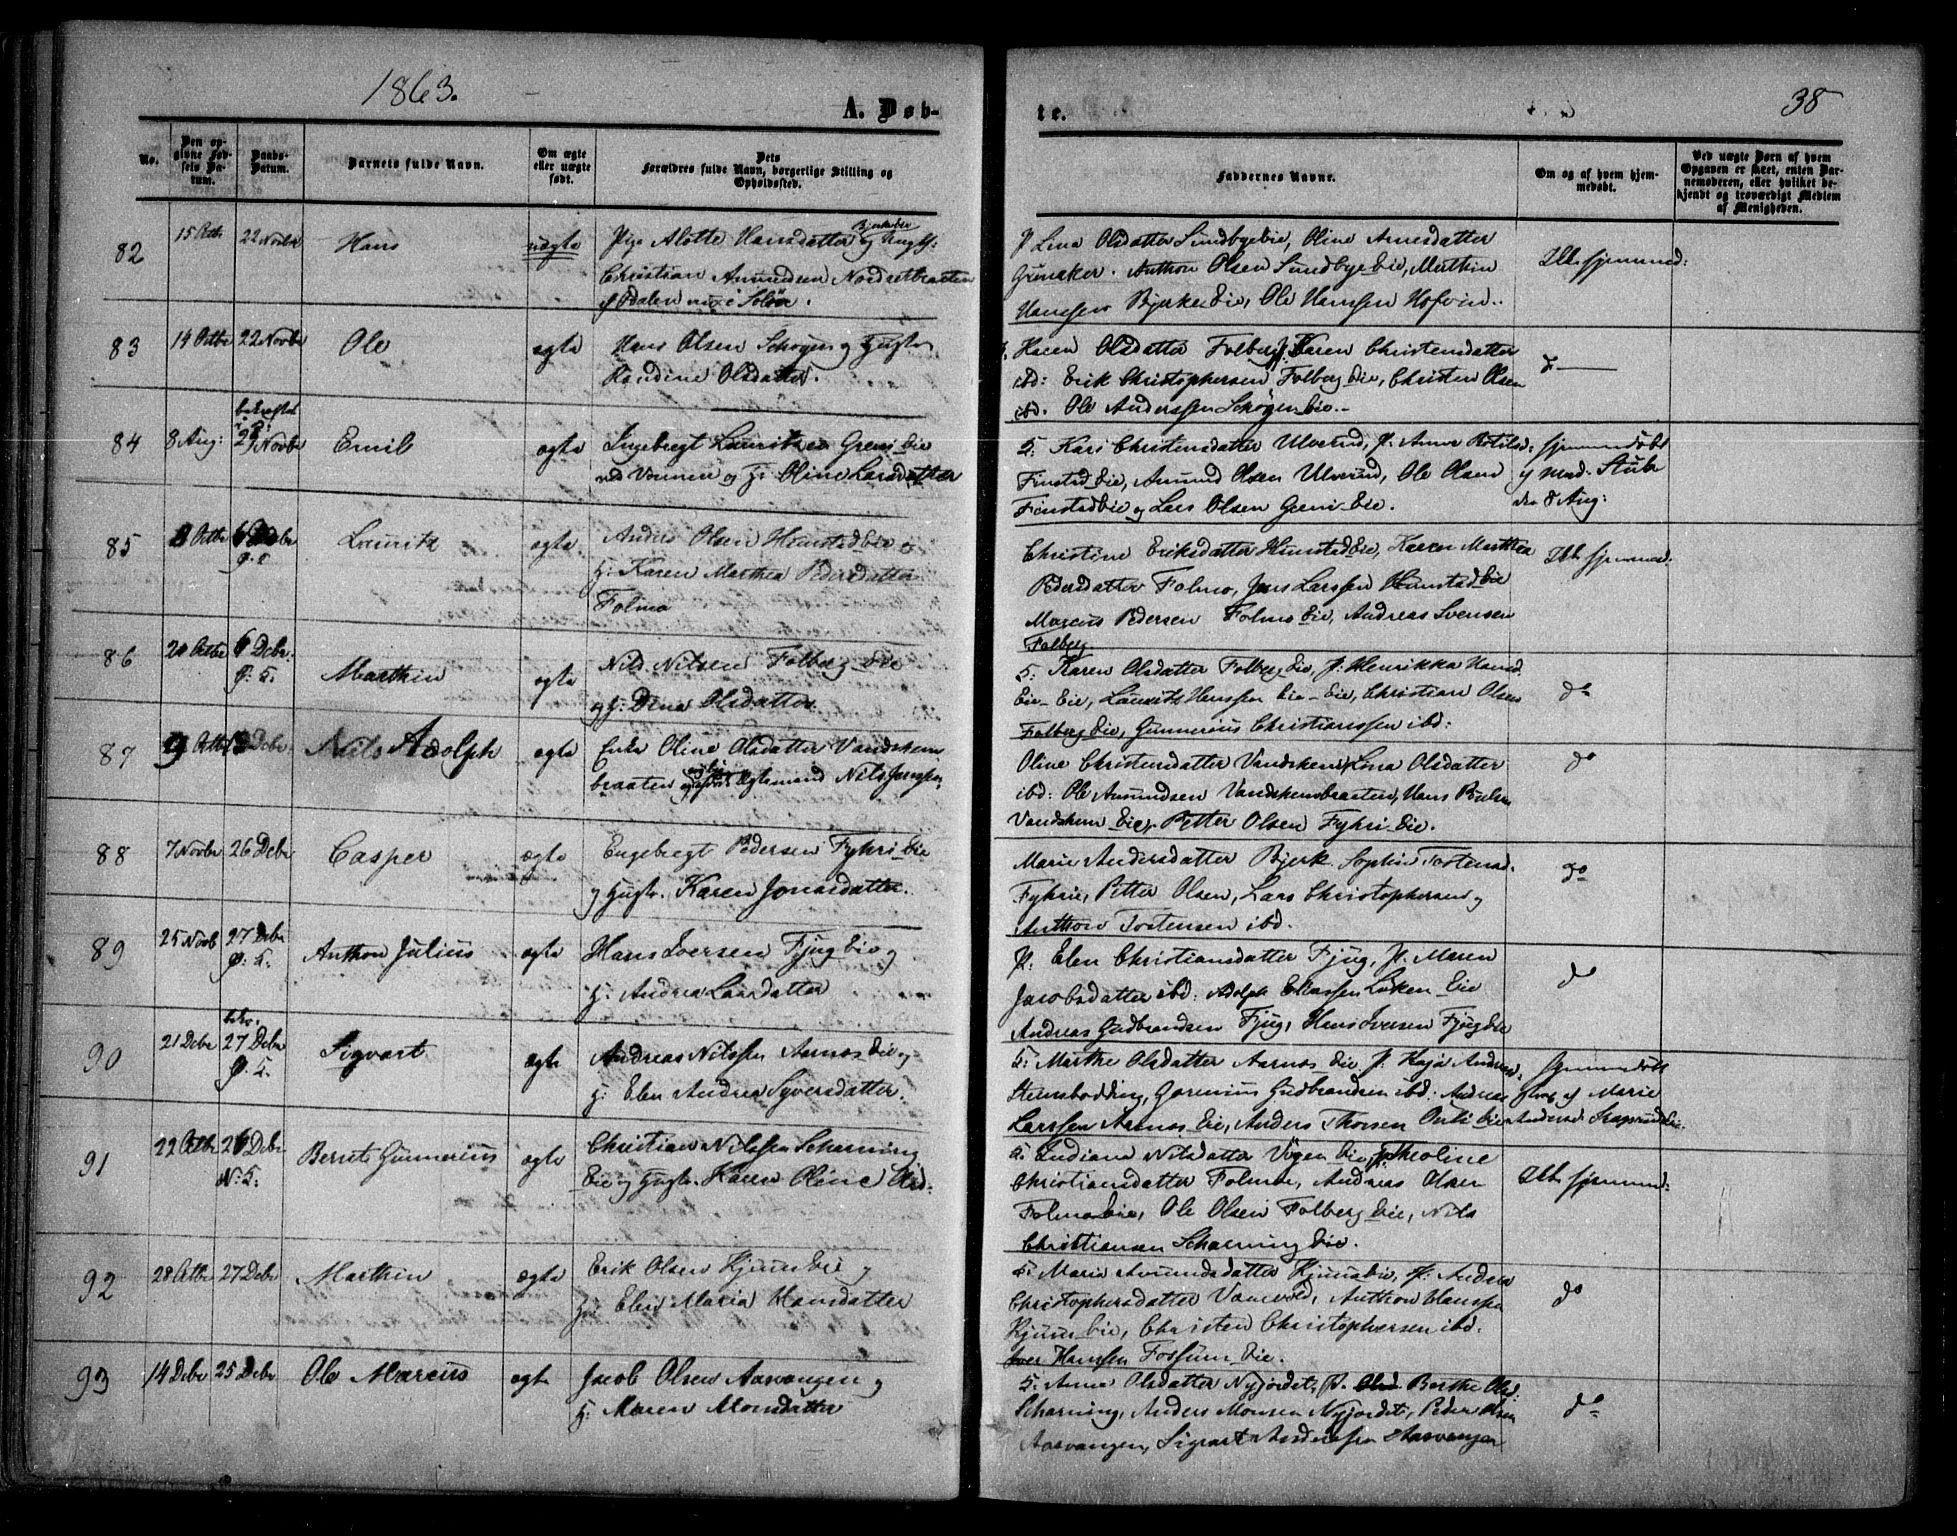 1863.
38
A. Døb-
te.
No.
Den op-
givne Fød-
sels Da-
tum.
Daabs-
Datum.
Barnets fulde Navn.
Om ægte
eller uægte
født.
Dets
Forældres fulde Navn, borgerlige Stilling og
Opholdssted.
Faddernes Navne.
Om og af hvem hjem-
medøbt.
Ved uægte Børn af hvem
Opgaven er skeet, enten Bar-
nemoderen, eller hvilket be-
kjendt og troværdigt Medlem
af Menigheden.
82 15 Octbr 22 Novbr Hans uægte Pige Alotte Hansdatter Bjerke Eie og Ungk:
Christian Amundsen Nordsetbraaten
Odalen nu i Solør.
P Lina Olsdatter Sundbyeeie, Oline Arnesdatter
Grinaker. Anthon Olsen Sundbye Eie, Mathin
Hanssen Bjerke Eie, Ole Hanssen Hofvin.
Ikke hjemmed:
83 14 Octbr 22 Novbr Ole ægte Hans Olsen Schøyen og Hustr
Randine Olsdatter.
Karen Olsdatter Folberg, P: Karen Christensdatter
ibd: Erik Christophersen Folberg Eie, Christen Olsen
ibd. Ole Anderssen Schøyen Eie.
do
84 8 Aug: bekræftet 29 Novbr Emil ægte Ingebregt Lauritzen Greni Eie
ved Vormen og H: Oline Larsdatter
K: Kari Christensdatter Ulverud, P: Anne Botilsd:
Finstad Eie, Amund Olsen Ulverud, Ole Olsen
Finstad Eie og Lars Olsen Greni Eie.
hjemmedøbt
af Mad. Stub
den 8 Aug:
85 8 Octbr 6 Debr Lauritz ægte Anders Olsen Hunstad Eie og
H: Karen Marthea Pedersdatter
Folmo
Christine Eriksdatter Hunstad Eie, Karen Marthea
Pedersdatter Folmo, Jens Larssen Hunstad Eie
Marcus Pedersen Folmo Eie, Andreas Svensen
Folberg
Ikke hjemmed:
86 20 Octbr 6 Debr: Marthin ægte Nils Nilsen Folberg Eie
og H: Dina Olsdatter
K: Karen Olsdatter Folberg Eie, P: Henrikka Hansd.
Eie-Eie, Lauritz Hanssen Eie-Eie, Christian Olsen
Folberg Eie, Gunnerius Christianssen ibd:
do
87 9 Octbr Debr. Nils Adolph ægte Enke Oline Olsdatter Vandshem
braaten og Ægtemand Nils Jensen
Oline Christensdatter Vandshem, Lina Olsdatter
ibd: Ole Amundsen Vandshembraaten, Hans
Vandshem Eie, Petter Olsen Fyhri Eie.
do
88 7 Novbr 26 Debr Casper ægte Engebregt Pedersen Fyhri Eie
og Hustr. Karen Jonasdatter.
Marie Andersdatter Bjerk Sophie Tostensd.
Fyhrie, Petter Olsen, Lars Christophersen og
Anthon Tostensen ibd.
do
89 25 Novb 27 Debr Anthon Julius ægte Hans Iversen Fjug Eie og
H: Andrea Larsdatter
P: Elen Christiansdatter Fjug, P. Maren
Jacobsdatter ibd: Adolph Eliassen Løken Eie
Andreas Gudbrandsen Fjug, Hans Iversen Fjug Eie
do
90 21 Debr 27 Debr Sigvart ægte Andreas Nilssen Aarnæs Eie og
H: Elen Andrea Syversdatter.
K: Marthe Olsdatter Aarnæs Eie P: Kaja Andersd.
Stensbodding, Gunnerius Gudbrandsen ibd: Andreas
Larssen Aarnæs Eie, Anders Thoresen Ouli Eie
hjemmedøbt
af Marie
Andersd Kasprud Eie.
91 22 Octbr 26 Debr Bernts Gunnerius ægte Christian Nilssen Scharning
Eie og Hustr. Karen Oline Olsd:
K: Indiana Nilsdatter Vøyen Eie, P Theoline
Christiansdatter Folmoe, Andreas Olsen
Folmo Eie, Ole Olsen Folberg Eie, Nils
Christiansen Scharning Eie.
Ikke hjemmed:
92 28 Octbr 27 Debr Marthin ægte Erik Olsen Kjuus Eie og
H: Elen Maria Hansdatter
K: Marie Amundsdatter Kjuus Eie, P: Andrea
Christophersdatter Vamvold, Anthon Hanssen
Kjuus Eie, Christen Christophersen ibd.
Iver Hanssen Fossum Eie.
do
93 14 Debr 25 Debr Ole Marcus ægte Jacob Olsen Aasvangen og
H: Maren Monsdatter
K: Anne Olsdatter Nyjordet, P. Berthe Olsd:
Scharning, Anders Monsen Nyjordet, Peder Olsen
Aasvangen, Sigvart Anderssen Aasvangen
do